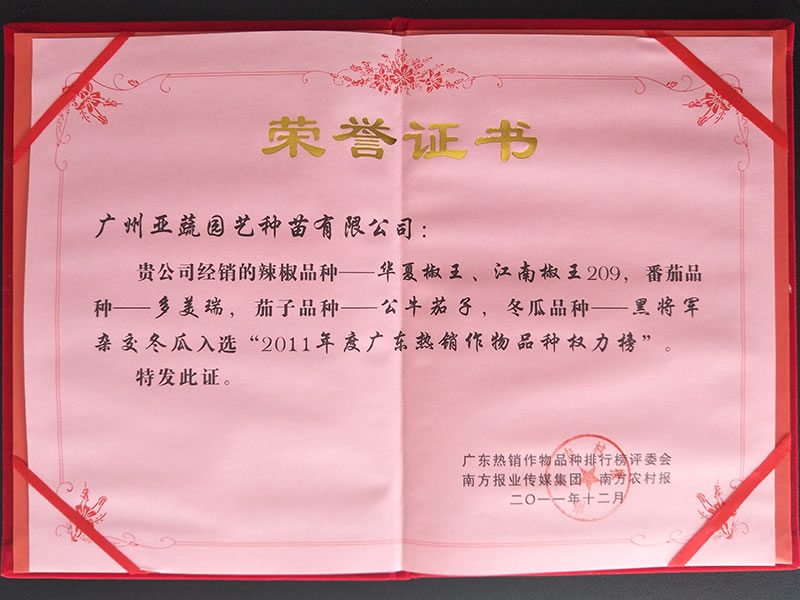 荣誉证书
广州亚蔬园艺种苗有限公司：
贵公司经销的辣椒品种——华夏椒王、江南椒王209，番茄品
种——多美瑞，茄子品种——公牛茄子，冬瓜品种——黑将军
杂交冬瓜入选“2011年度广东热销作物品种权力榜”。
特发此证。
广东热销作物品种排行榜评委会
南方报业传媒集团 南方农村报
二〇一一年十二月